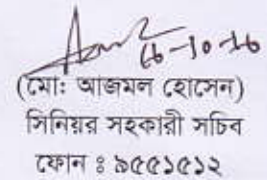 16-10-16
(মোঃ আজমল হোসেন)
সিনিয়র সহকারী সচিব
ফোন ঃ ৯৫৫১৫১২